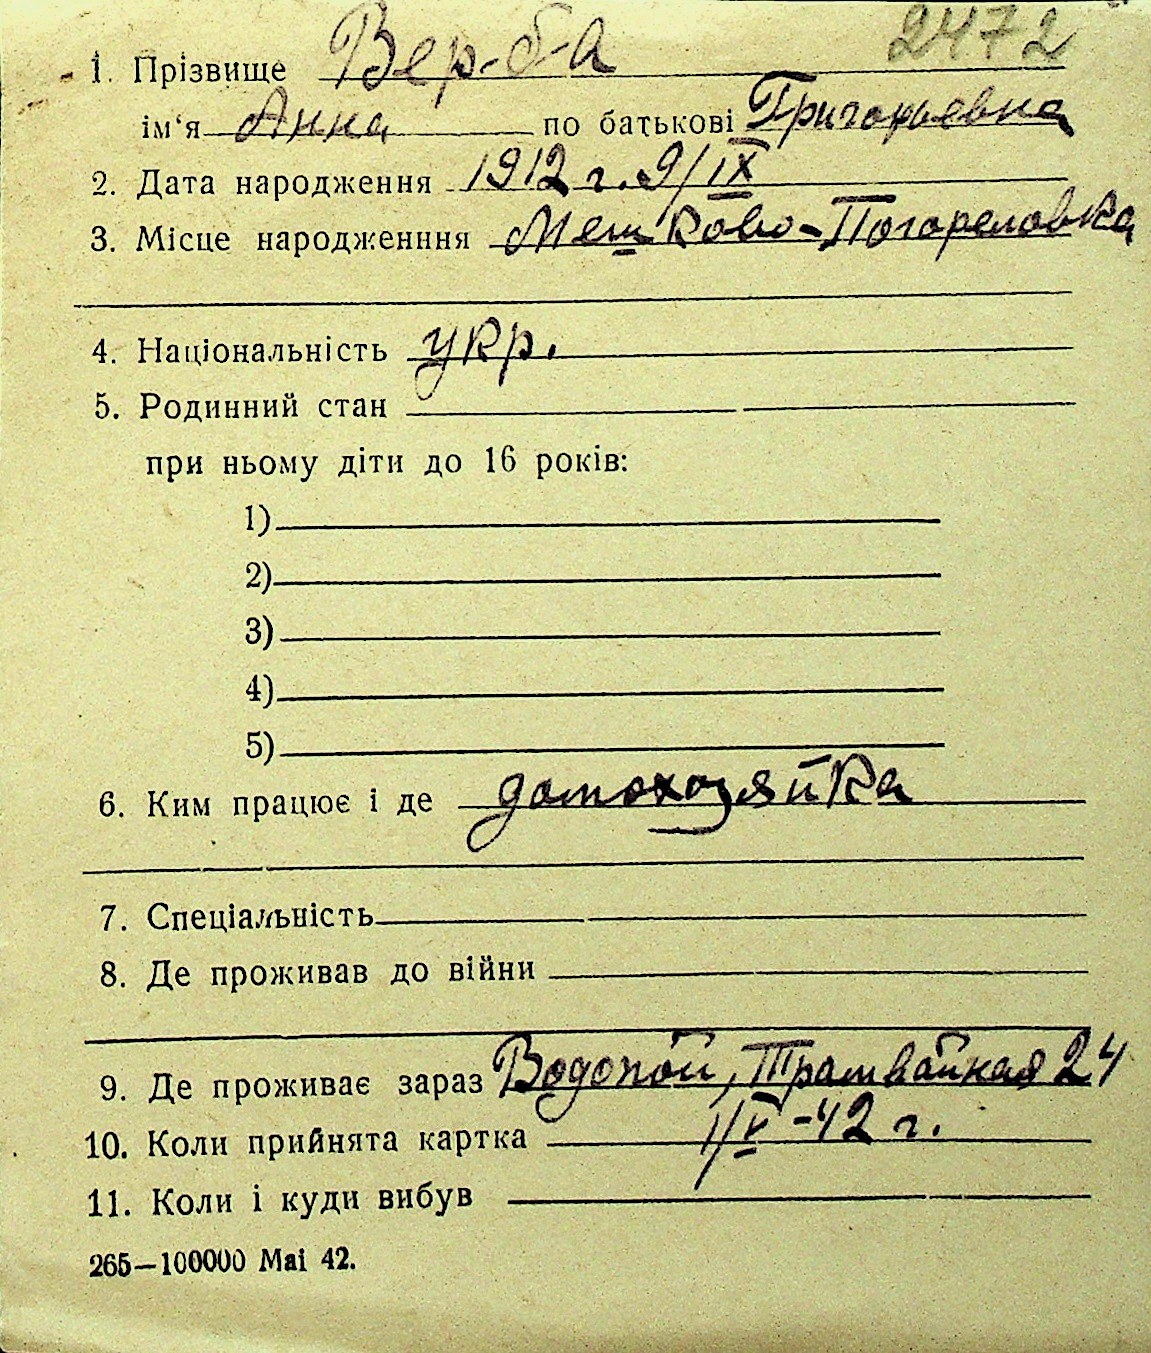 2472
1. Прізвище Вер-б-а
ім'я Анна по батькові Григорьевна
2. Дата народження 1912 г. 9/IX
3. Місце народженння Мешково-Погореловка
4. Національність укр.
5. Родинний стан
при ньому діти до 16 років:
1)
2)
3)
4)
5)
6. Ким працює і де домохозяйка
7. Спеціальність
8. Де проживав до війни
9. Де проживає зараз Водопой, Трамвайная 24
10. Коли прийнята картка 1/V-42 г.
11. Коли і куди вибув
265—100000 Mai 42.